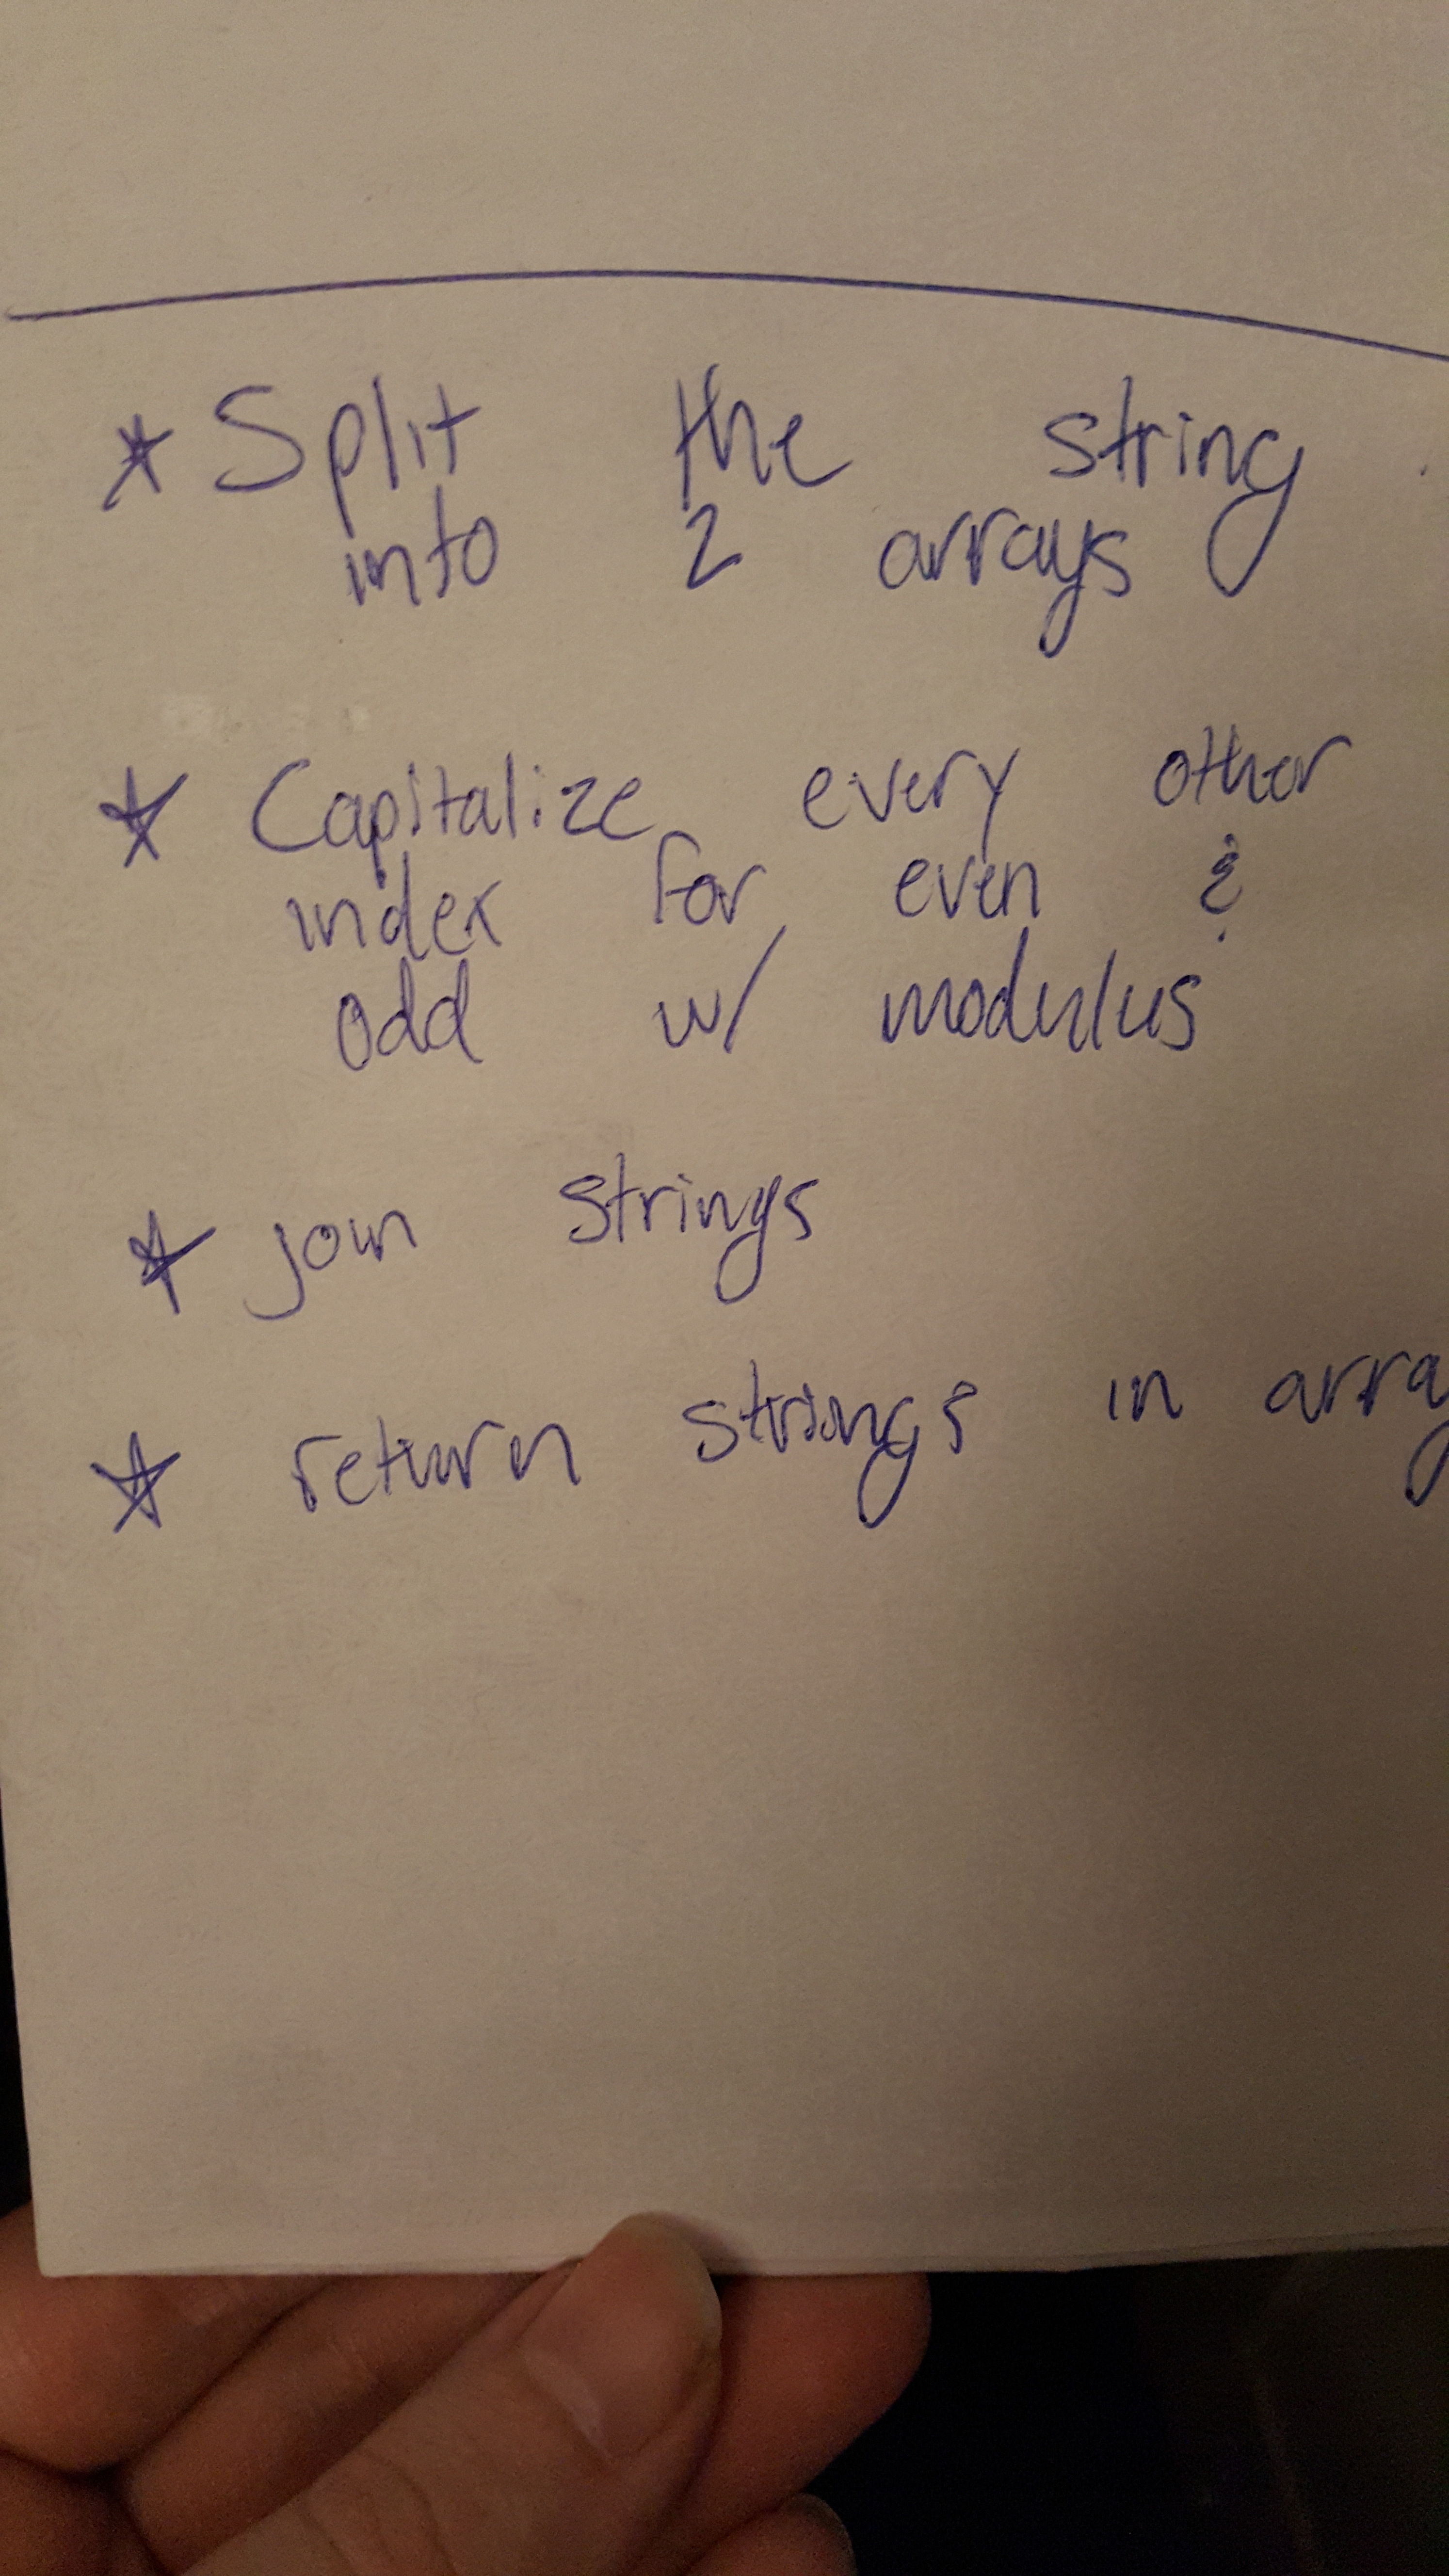 * Split the string
into 2 arrays
* Capitalize every other
index for even &
odd w/ modulus
* join strings
* return strings in array